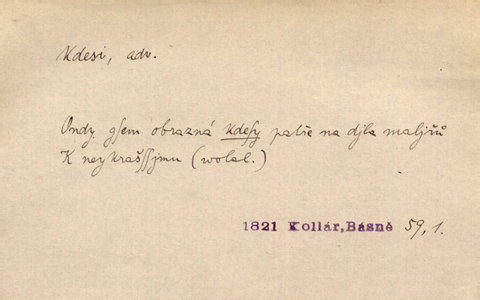 Kdesi, adv.
Ondy gſem obrazná kdeſy patře na djla maljřů
K neykraſſjmu (wolal.)
1821 Kollár, Básně 59, 1.